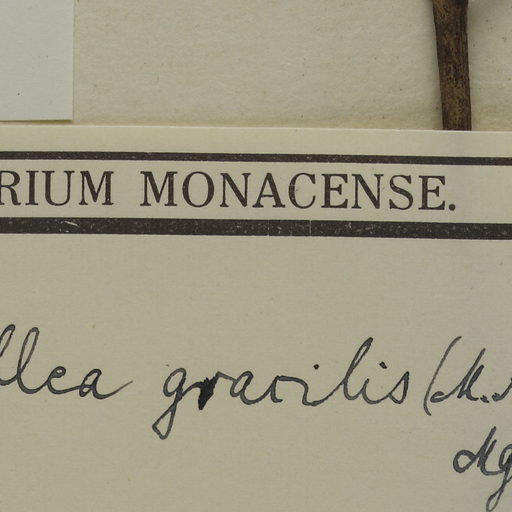 RIUM MONACENSE.
llea gracilis (M.
Mg